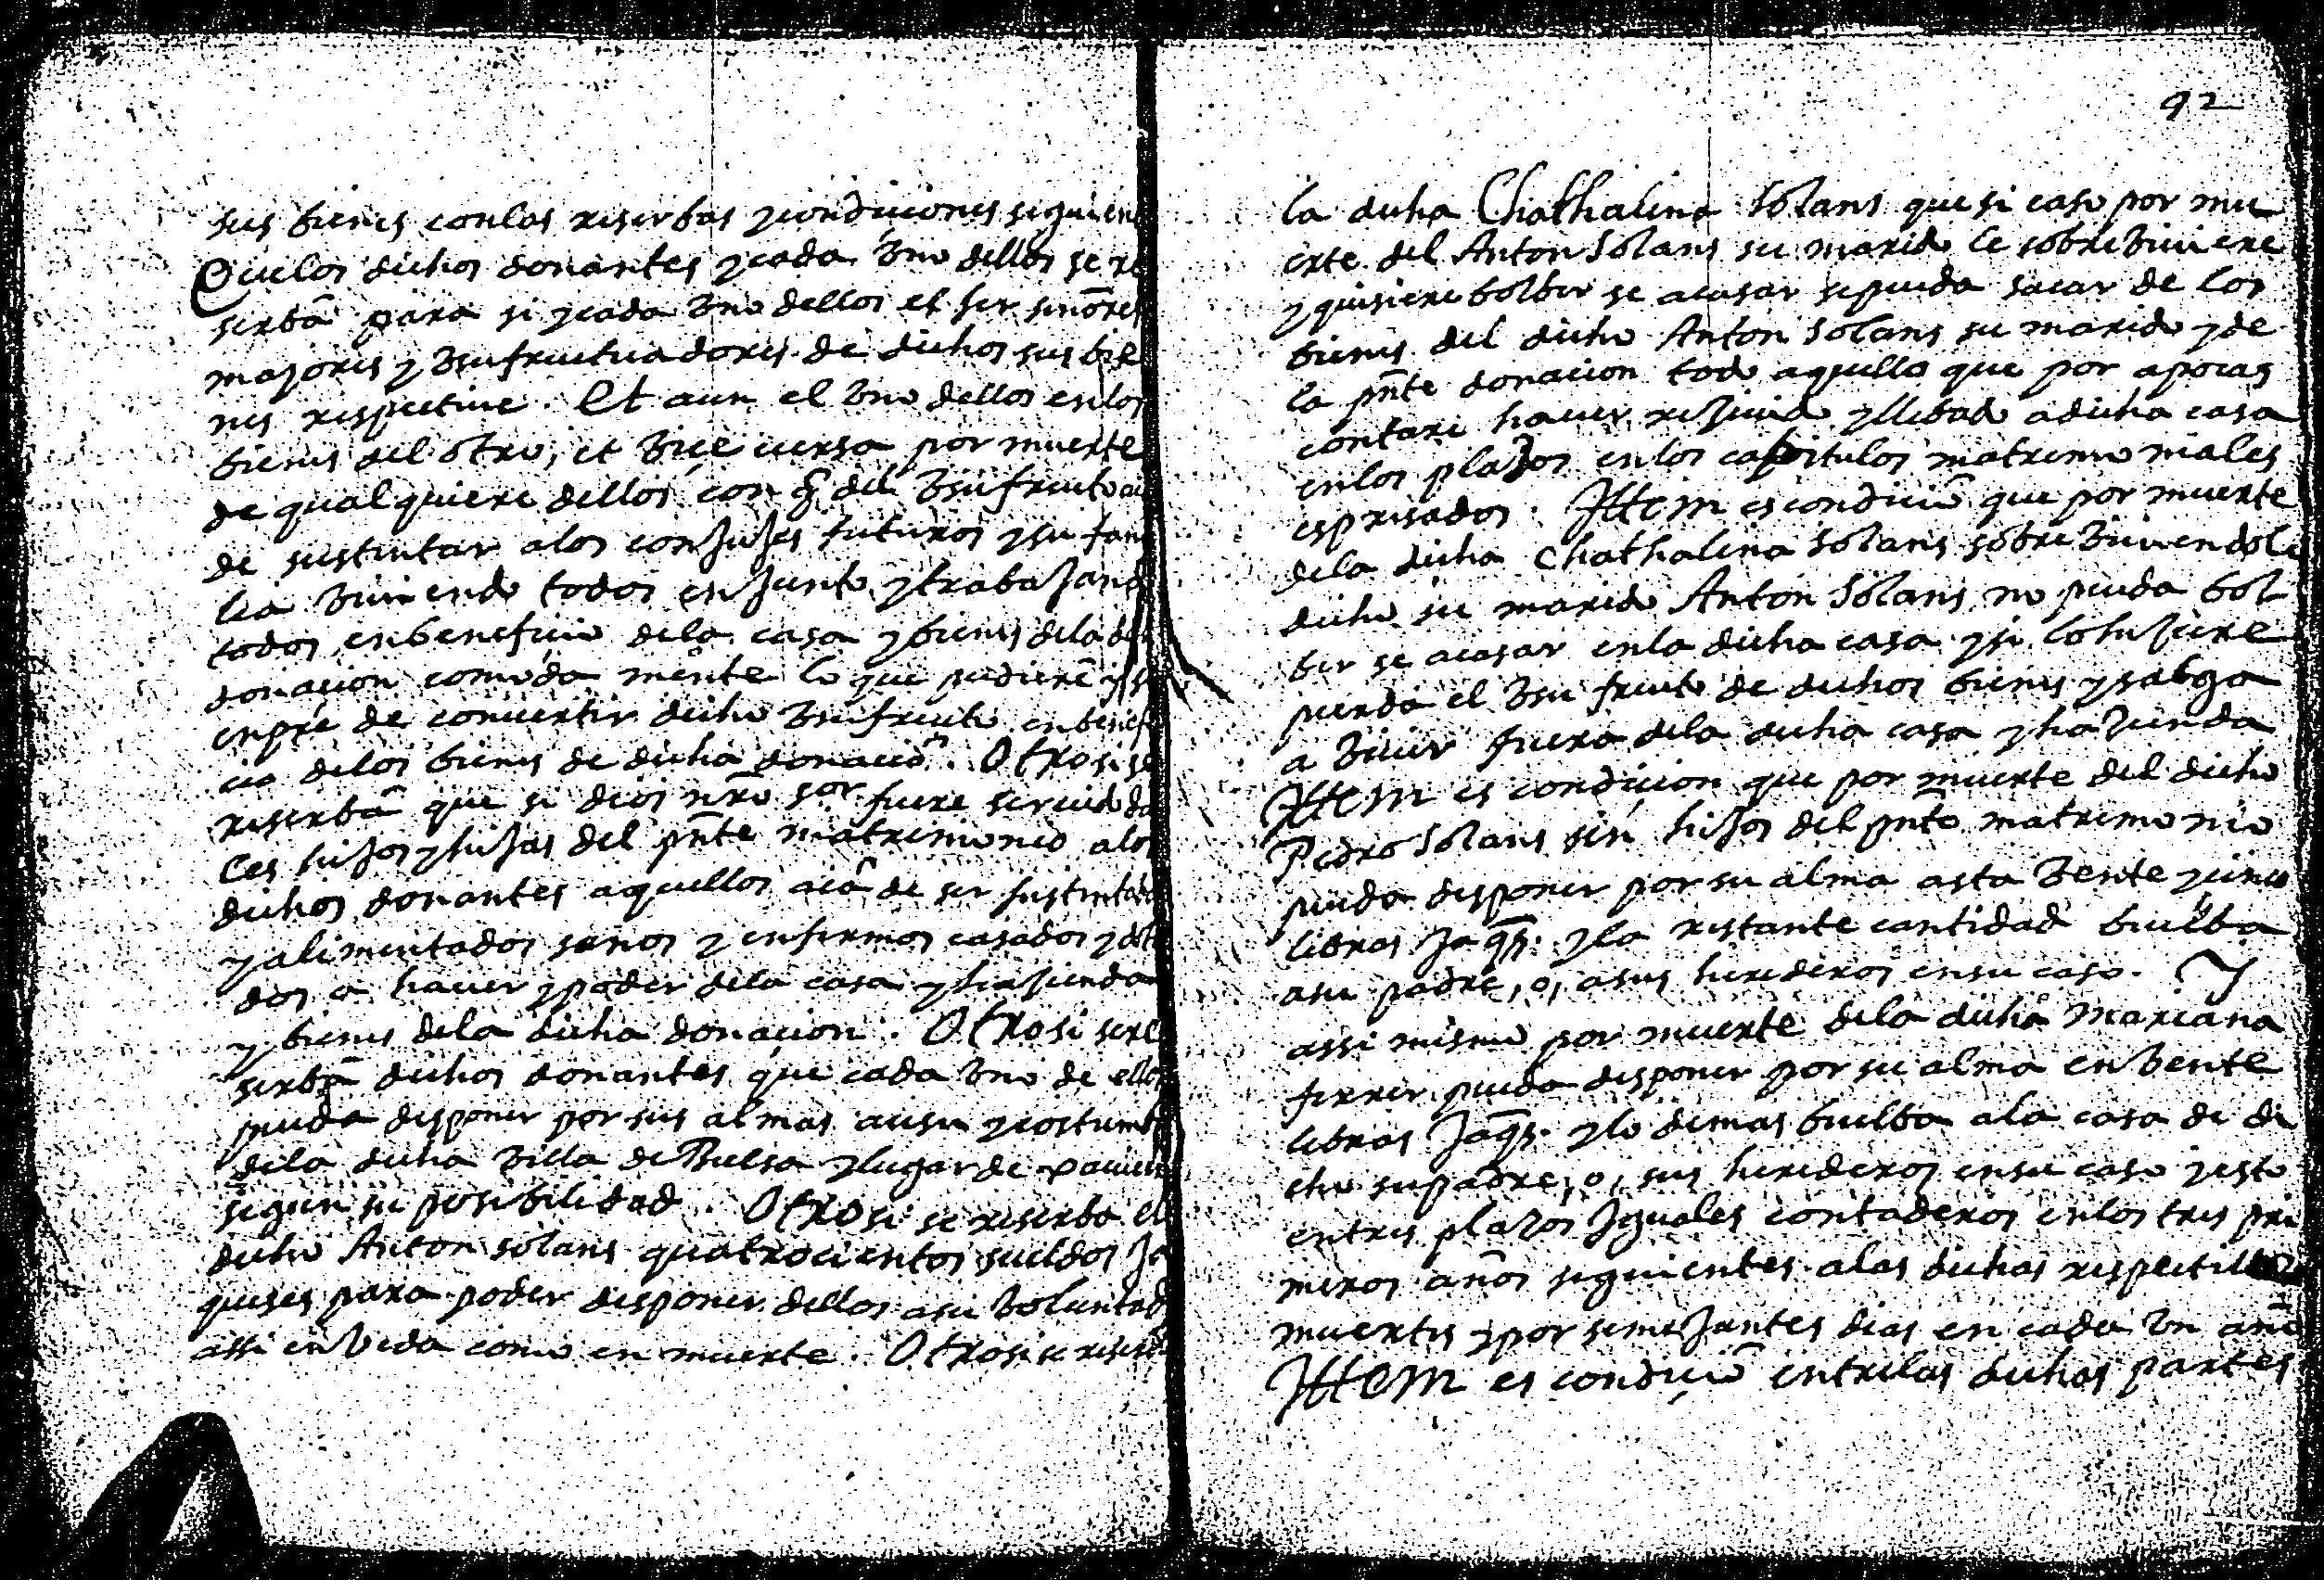 sus bienes con las reserbas y condiciones seguien
Que los dichos donantes y cada uno dellos se re
serbā para si y cada uno dellos el ser senōres
majores y usufructuadores de dichos sus bie
nes respective. Et aun el uno dellos en los
bienes del otro, et vice versa por muerte
de qualquiere dellos con q̄ del usufructo
de sustentar a los conjujes futuros y su fami
lia viviendo todos en junto y trabajando
todos en beneficio de la casa y bienes de la
donacion comoda mente lo que pudierē y si
enpre de convertir dicho usufructo en benefi
cio de los bienes de dicha donaciō. Otrosi se
reserbā que si dios nrō sor fuere servido
les hijos y hijas del pn̄te matrimonio a los
dichos donantes aquellos aiā de ser sustentados
y alimentados sanos y enfermos casados y dota
dos a haver y poder de la casa y hazienda
y bienes de la dicha donacion. Otrosi se re
serbā dichos donantes que cada uno de ellos
pueda disponer por sus almas a usu y costumb
de la dicha villa de Bulsa y lugar de
segun su posibilidad. Otrosi se reserba el
dicho Anton solans quatrocientos sueldos Ja
queses para poder disponer dellos a su voluntad
assi en vida como en muerte. Otrosi se reser
92
la dicha Chathalina Solans que si caso por mu
erte del Anton Solans su marido le sobreviviere
y quisiere bolber se a casar se pueda sacar de los
bienes del dicho Anton Solans su marido y de
la pn̄te donacion todo aquello que por apocas
contare haver rezivido y llebado a dicha casa
en los plazos en los capitulos matrimoniales
espresados. Ittem es condiciō que por muerte
de la dicha Chathalina Solans sobreviviendole
dicho su marido Anton Solans no pueda bol
ber se a casar en la dicha casa y si lo hiziere
pierda el usufructo de dichos bienes y salga
a vivir fuera de la dicha casa y hazienda
Ittem es condicion que por muerte del dicho
Pedro Solans sin hijos del pn̄te matrimonio
pueda disponer por su alma asta vente y cinco
libras Jaq̄s. y la restante cantidad buelba
a su padre, o, a sus herederos en su caso. Y
assi mismo por muerte de la dicha Mariana
ferrer pueda disponer por su alma en vente
libras Jaq̄s. y lo demas buelba a la casa de di
cho su padre, o, sus herederos en su caso y esto
en tres plazos Iguales contaderos en los tres pri
meros años seguientes a las dichas respectivas
muertes y por semejantes dias en cada un año
Ittem es condiciō entre las dichas partes